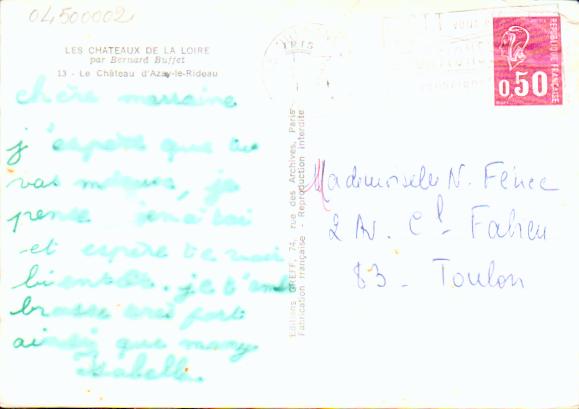 04500002
LES CHATEAUX DE LA LOIRE
par Bernard Buffet
13 - Le Château d'Azay-le-Rideau
chère marraine
j'espère que tu
vas mieux, je
pense à toi
et espère te voir
bientôt. je t'em
brasse très fort
ainsi que mamy
Isabelle
Editions GRIEFF, 74, rue des Archives, Paris
Fabrication française - Reproduction interdite
PARIS
REPUBLIQUE FRANÇAISE
0,50
Mademoiselle N. Fénec
2 Av. Cl Fabien
83 - Toulon